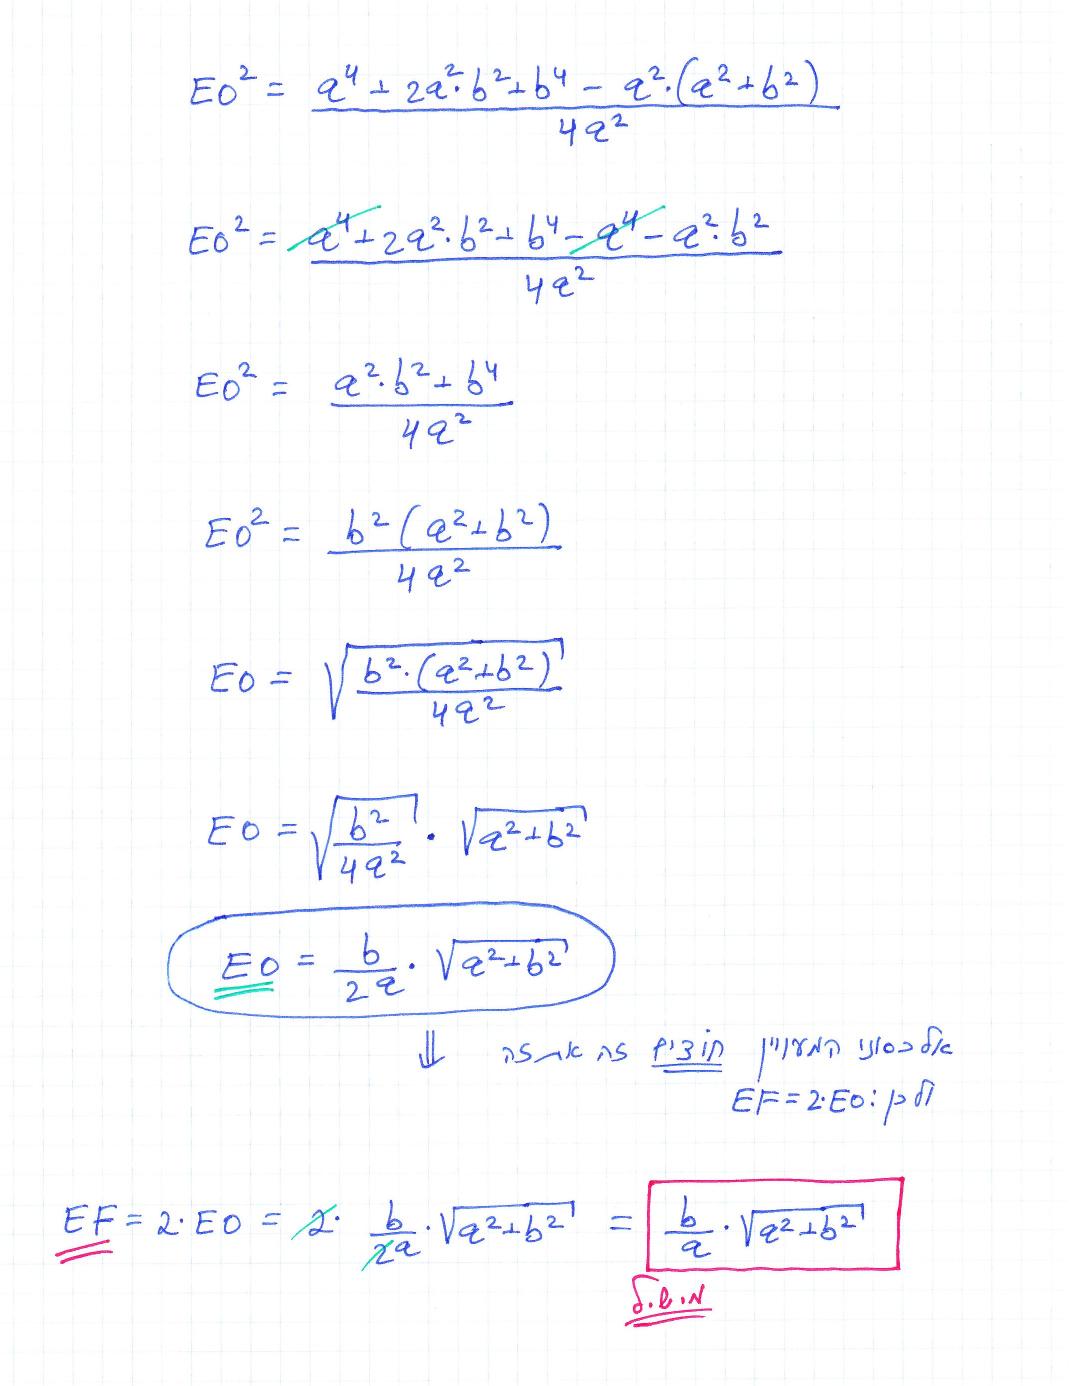 EO² = (a⁴ + 2a²·b² + b⁴ − a²·(a² + b²)) / 4a²
EO² = (a⁴ + 2a²·b² + b⁴ − a⁴ − a²·b²) / 4a²
EO² = (a²·b² + b⁴) / 4a²
EO² = b²(a² + b²) / 4a²
EO = √(b²·(a² + b²) / 4a²)
EO = √(b² / 4a²) · √(a² + b²)
EO = b/2a · √(a² + b²)
⇓ אלכסוני המעויין חוצים זה את זה
ולכן: EF = 2·EO
EF = 2·EO = 2· b/2a · √(a² + b²) = b/a · √(a² + b²)
מ.ש.ל